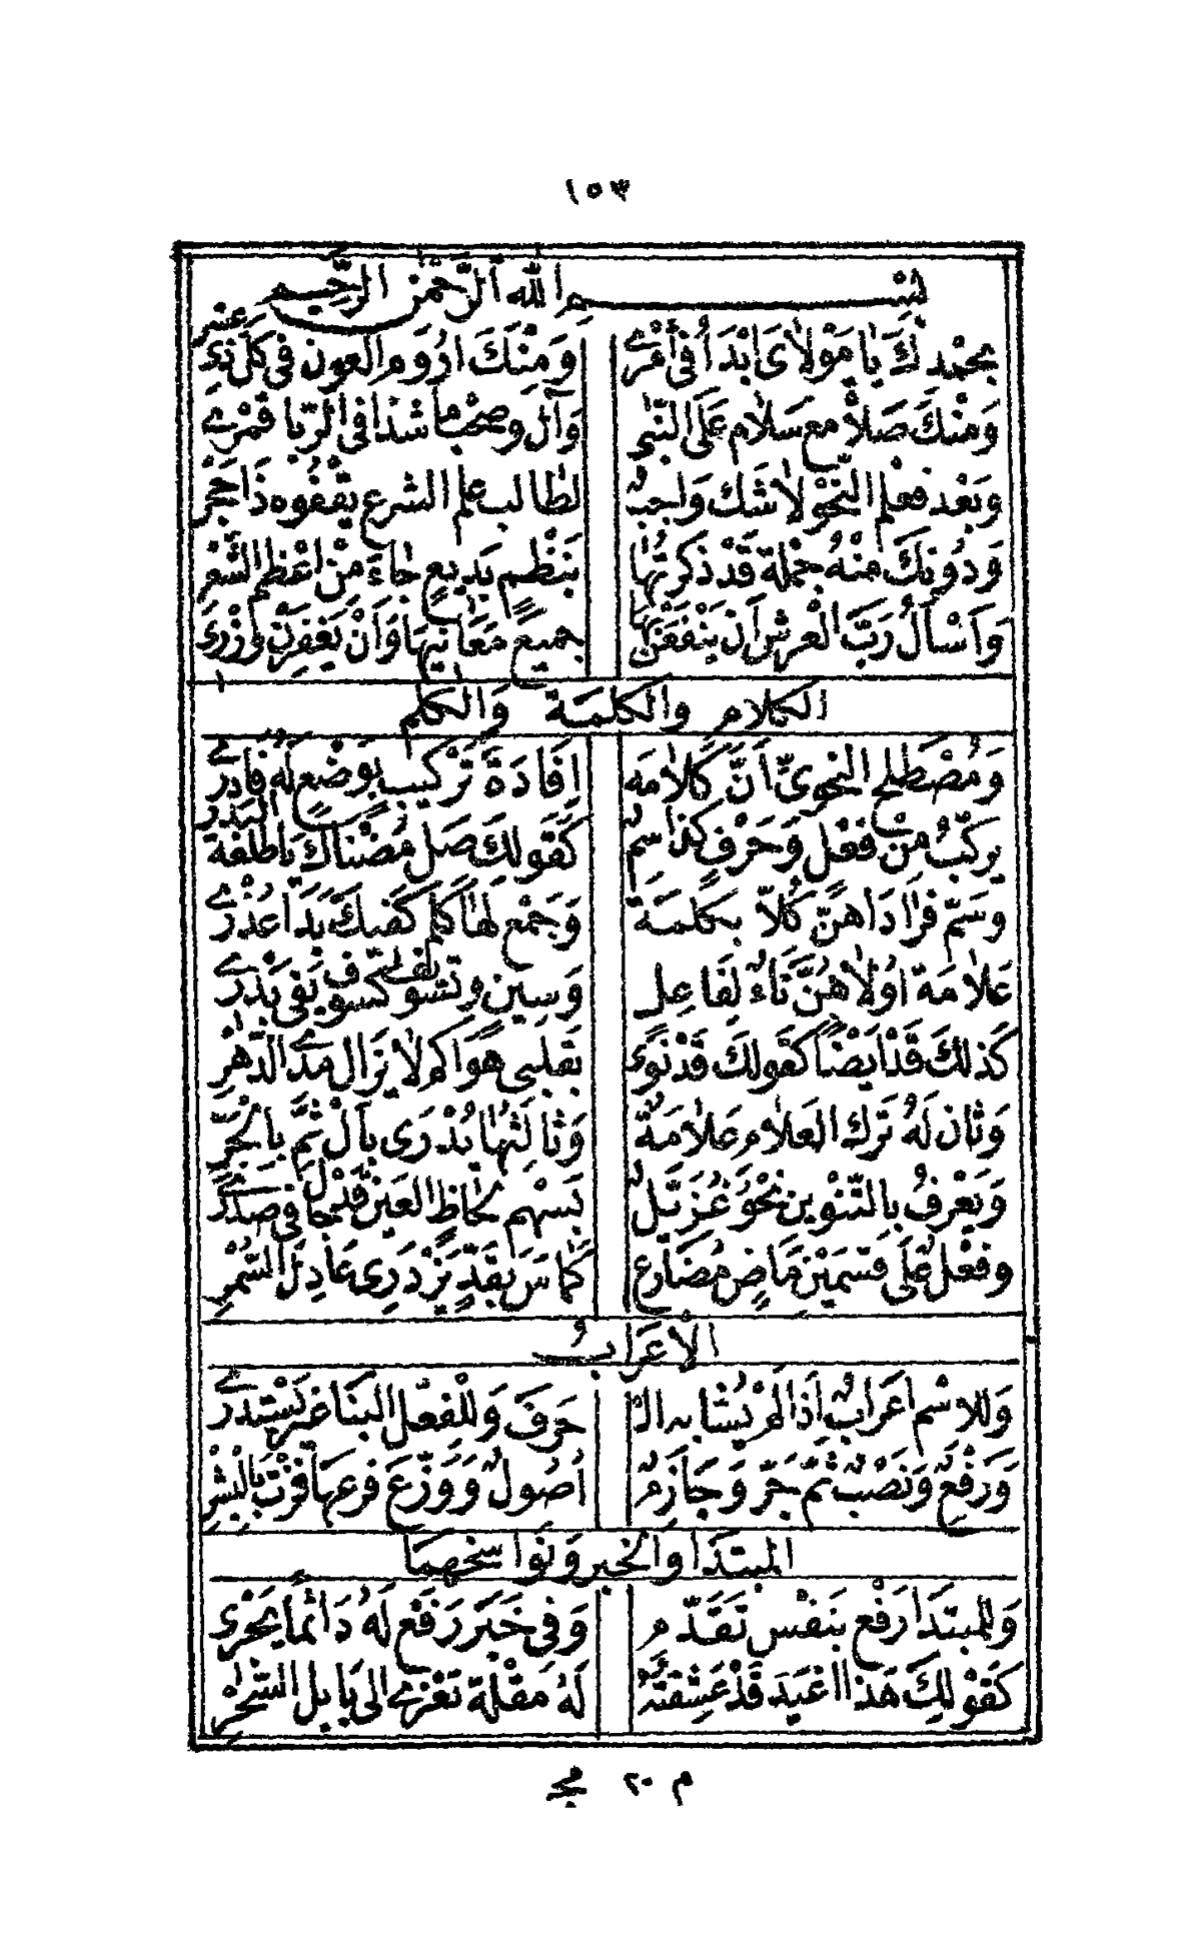 ١٥٣
بسم الله الرحمن الرحيم
بحمدك يا مولاى ابدأ فى أمرى ومنك اروم العون فى كل ذى عسر
ومنك صلاة مع سلام على النبى وآل وصحب ما شذا فى الربا قمرى
وبعد فعلم النحو لا شك واجب لطالب علم الشرع يقفوه ذا حجر
ودونك منه جملة قد ذكرتها بنظم بديع جاء من اعظم الشعر
واسأل رب العرش ان ينفعن بها جميع معانيها وأن يغفرن وزرى
الكلام والكلمة والكلم
ومصطلح النحوى أن كلامه افادة تركيب بوضع له فادر
يركب من فعل وحرف كذا سم كقولك صل مضناك يا طلعة البدر
وسم فرادا هن كلا بكلمة وجمع لها كلم كفيك بدا عذرى
علامة اولاهن تاء لفاعل وسين وتسويف كسوف
كذلك قد ايضا كقولك قد نوى بقلبى هواكم لا يزال مدى الدهر
وثان له ترك العلام علامة وثالثها يدرى بأل ثم بالجر
ويعرف بالتنوين نحو غزيل بسهم لحاظ العين قد جال فى صدرى
وفعل على قسمين ماض مضارع كماس بقد يزدرى عادل السمر
الاعراب
وللاسم اعراب أذا لم يشابه الـ حرف وللفعل البناغير
ورفع ونصب ثم جر وجازم أصول ووزع فرعها فزت بالبشر
المبتدا والخبر ونواسخهما
وللمبتدا رفع بنفس تقدم وفى خبر رفع له دائما يجرى
كقولك هذا اغيد قد عشقته له مقلة تعزى الى بابل السحر
م ٢٠ مج